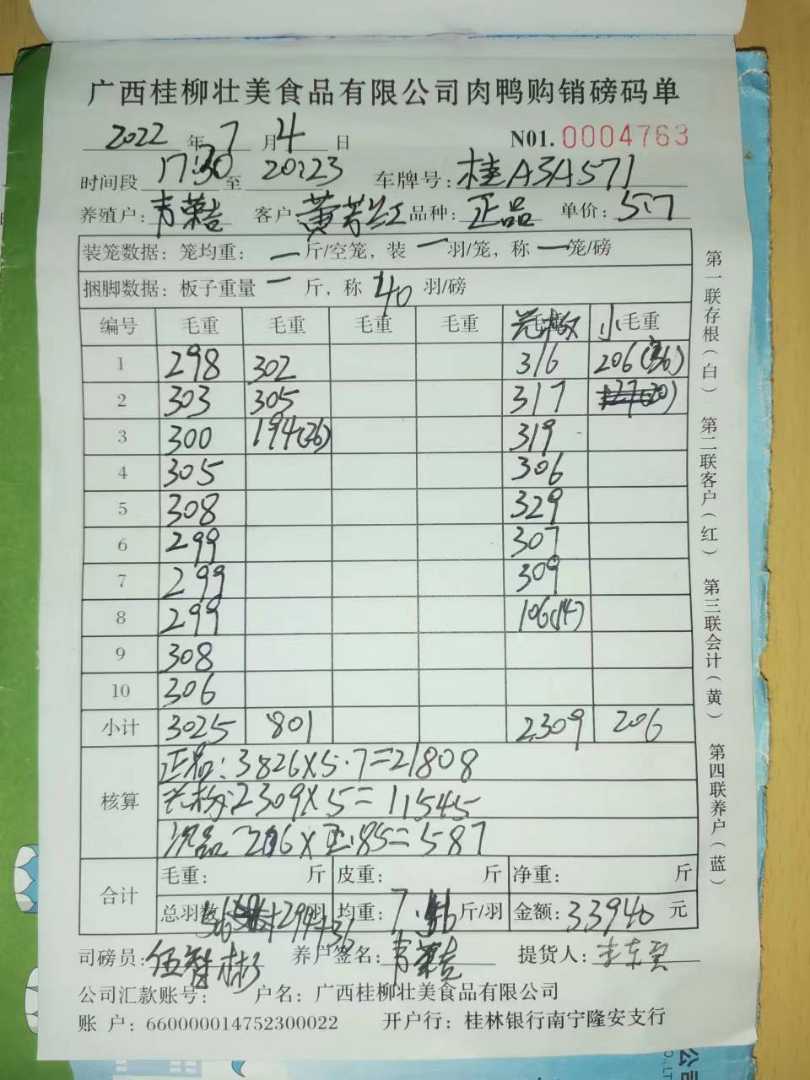 广西桂柳壮美食品有限公司肉鸭购销磅码单
2022 年 7 月 4 日 N01. 0004763
时间段 17:30 至 20:23 车牌号: 桂A3A571
养殖户: 荣吉 客户 黄芳红 品种: 正品 单价: 5.7
装笼数据: 笼均重: 一 斤/空笼, 装 一 羽/笼, 称 一 笼/磅
捆脚数据: 板子重量 一 斤, 称 40 羽/磅
编号 毛重 毛重 毛重 毛重 毛重 小毛重
1 298 302 316 206(36)
2 303 305 317
3 300 194(26) 319
4 305 306
5 308 329
6 299 307
7 299 309
8 299 106(14)
9 308
10 306
小计 3025 801 2309 206
核算
正品: 3826X5.7=21808
2309X5=11545
次品 206X2.85=587
合计
毛重: 斤 皮重: 斤 净重: 斤
总羽数 羽 均重: 斤/羽 金额: 33940 元
司磅员: 伍智彬 养户签名: 荣吉 提货人: 李东
公司汇款账号: 户名: 广西桂柳壮美食品有限公司
账 户: 660000014752300022 开户行: 桂林银行南宁隆安支行
第一联存根(白) 第二联客户(红) 第三联会计(黄) 第四联养户(蓝)
公司